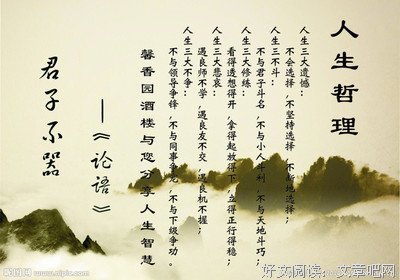 人生哲理
人生三大遗憾：
不会选择，不坚持选择，不断地选择；
人生三不斗：
不与君子斗名，不与小人斗利，不与天地斗巧；
人生三大修炼：
看得透想得开，拿得起放得下，立得正行得稳；
人生三大悲哀：
遇良师不学，遇良友不交，遇良机不握；
人生三大不争：
不与领导争锋，不与同事争宠，不与下级争功。
馨香园酒楼与您分享人生智慧
—《论语》
君子不器
www.nipic.com
好文阅读：文章吧网